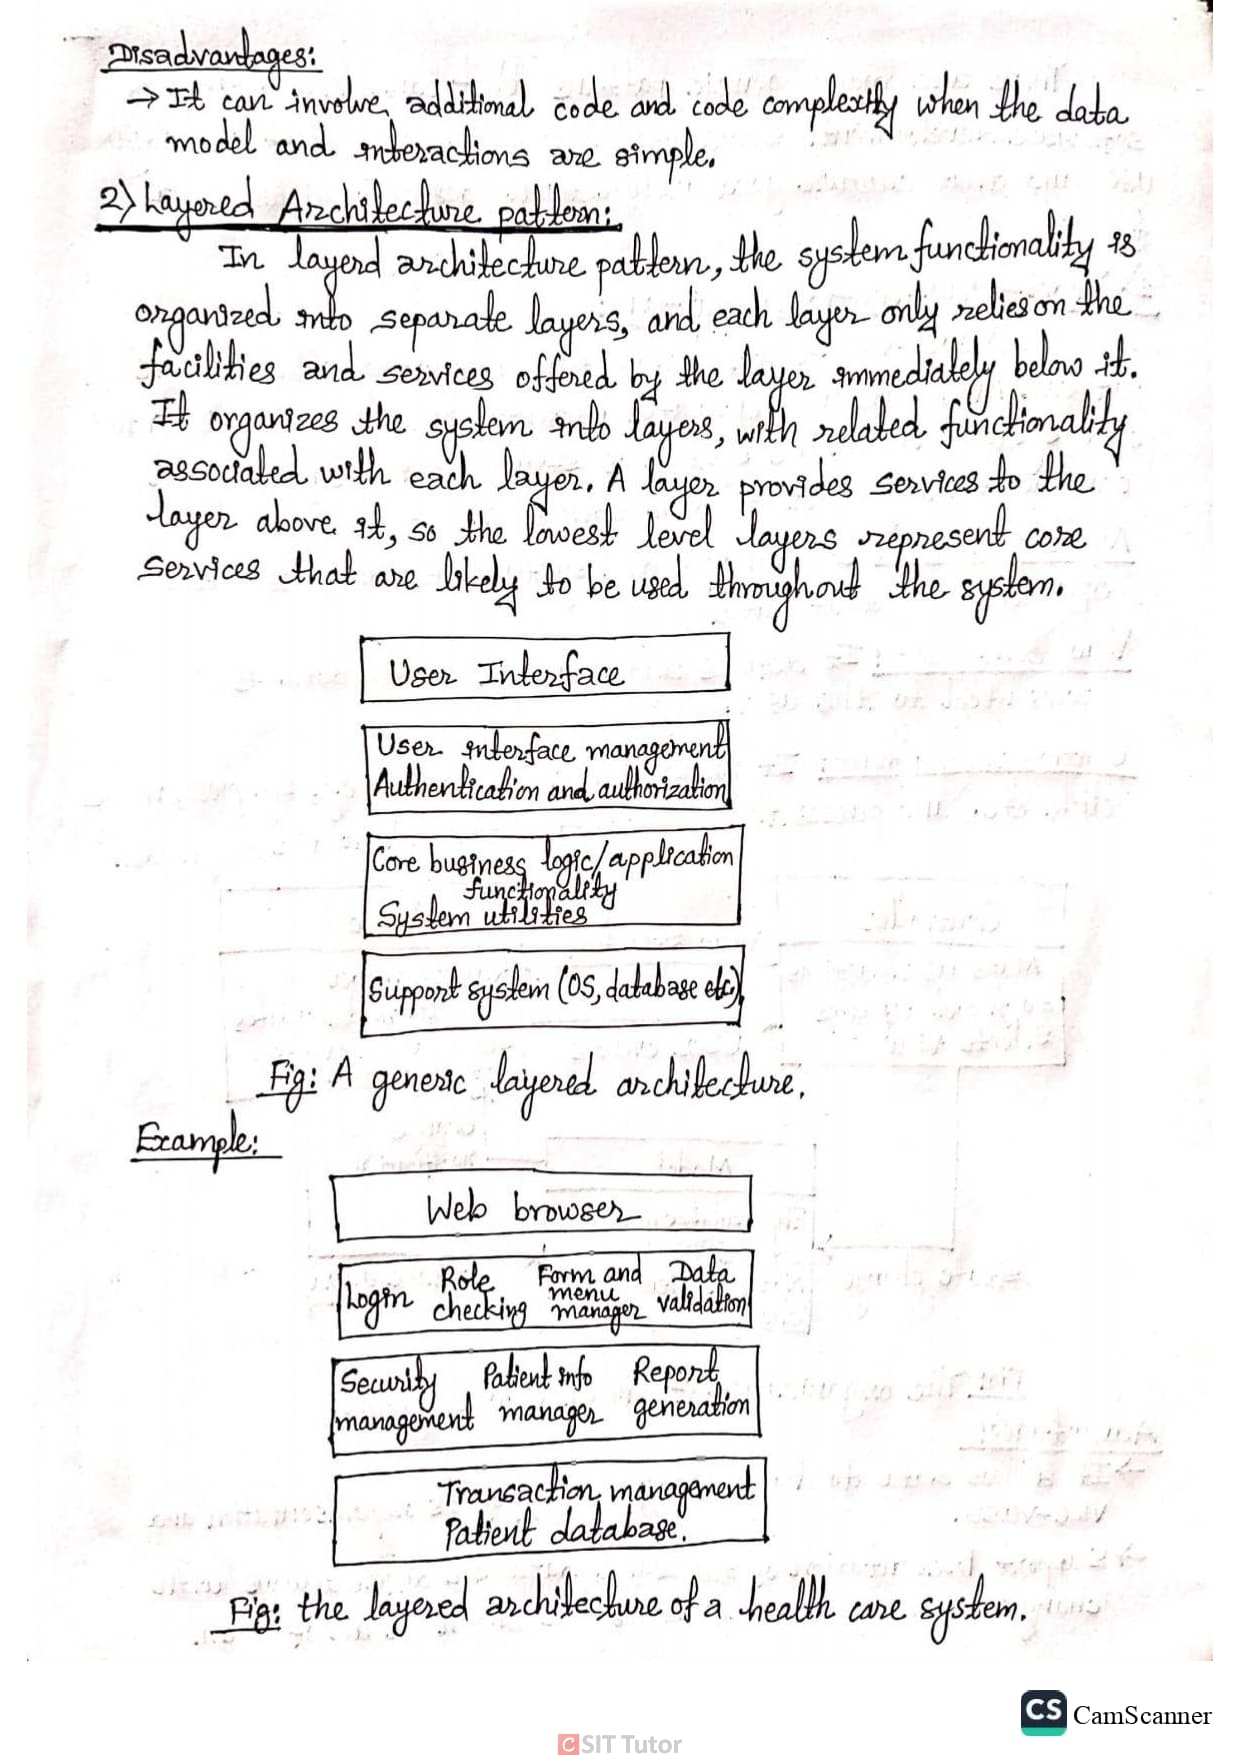 Disadvantages:
→ It can involve additional code and code complexity when the data
model and interactions are simple.
2) Layered Architecture pattern:
In layerd architecture pattern, the system functionality is
organized into separate layers, and each layer only relies on the
facilities and services offered by the layer immediately below it.
It organizes the system into layers, with related functionality
associated with each layer. A layer provides services to the
layer above it, so the lowest level layers represent core
services that are likely to be used throughout the system.
User Interface
User interface management
Authentication and authorization
Core business logic/application
functionality
System utilities
Support system (OS, database etc)
Fig: A generic layered architecture.
Example:
Web browser
Login Role checking Form and menu manager Data validation
Security management Patient info manager Report generation
Transaction management
Patient database.
Fig: the layered architecture of a health care system.
CS CamScanner
CSIT Tutor